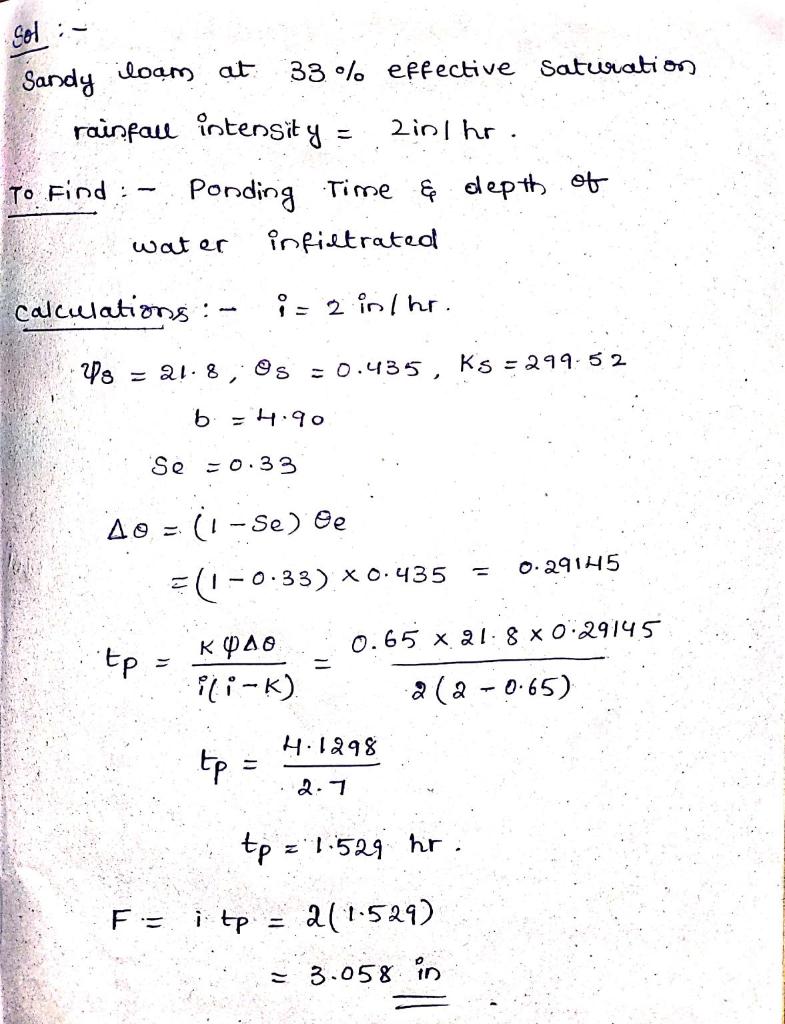 Sol :-
Sandy loam at 33 % effective saturation
rainfall intensity = 2in/hr.
To Find :- Ponding Time & depth of
water infiltrated
Calculations :- i = 2 in/hr.
ψs = 21.8, θs = 0.435, Ks = 299.52
b = 4.90
Se = 0.33
Δθ = (1 - Se) θe
= (1 - 0.33) x 0.435 = 0.29145
tp = KψΔθ / i(i-K) = 0.65 x 21.8 x 0.29145 / 2(2 - 0.65)
tp = 4.1298 / 2.7
tp = 1.529 hr.
F = i tp = 2(1.529)
= 3.058 in